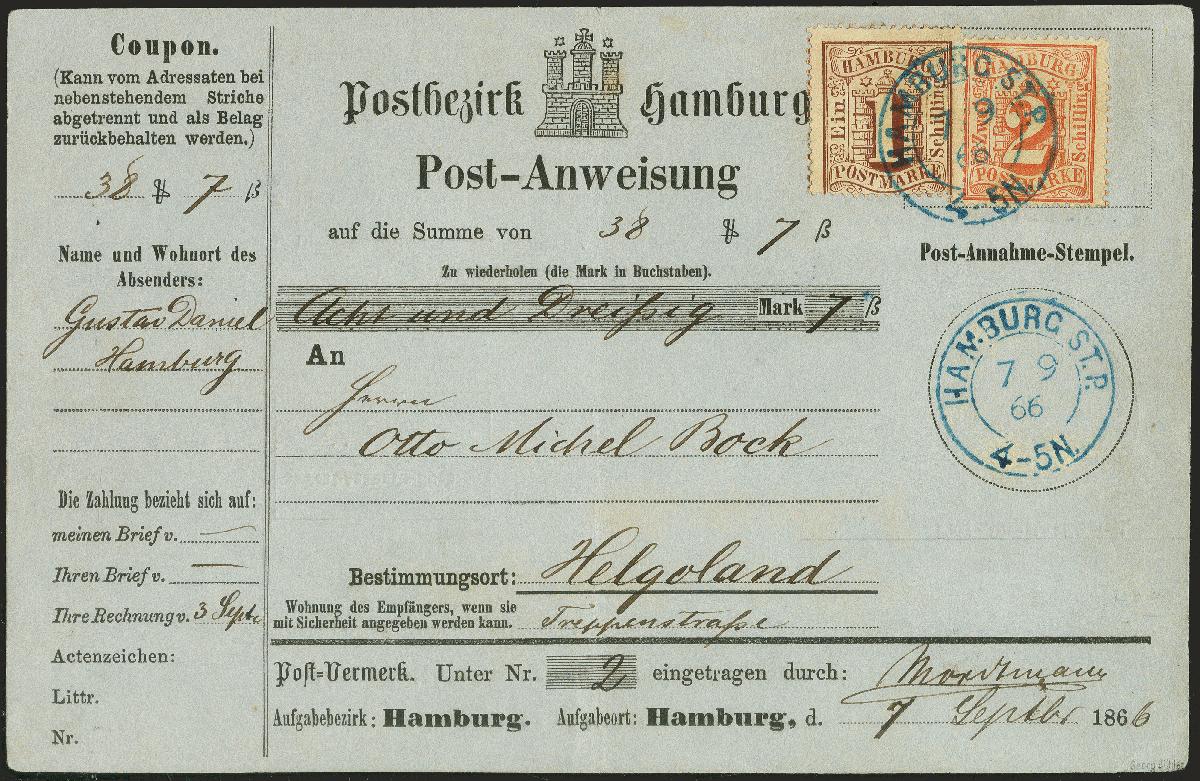 Coupon.
(Kann vom Adressaten bei
nebenstehendem Striche
abgetrennt und als Belag
zurückbehalten werden.)
38 ₰ 7 ß
Name und Wohnort des
Absenders:
Gustav Daniel
Hamburg
Die Zahlung bezieht sich auf:
meinen Brief v. —
Ihren Brief v. —
Ihre Rechnung v. 3 Septr
Actenzeichen:
Littr.
Nr.
Postbezirk Hamburg
Post-Anweisung
auf die Summe von 38 ₰ 7 ß
Zu wiederholen (die Mark in Buchstaben).
Acht und Dreißig Mark 7 ß
An
Herrn
Otto Michel Bock
Bestimmungsort: Helgoland
Wohnung des Empfängers, wenn sie
mit Sicherheit angegeben werden kann. Treppenstraße
Post-Vermerk. Unter Nr. 2 eingetragen durch: Mordtmann
Aufgabebezirk: Hamburg. Aufgabeort: Hamburg, d. 7 Septbr 1866
HAMBURG
Ein 1 Schilling
POSTMARKE
HAMBURG
Zwei 2 Schilling
POSTMARKE
HAMBURG ST.P.
7 9
66
4-5N.
Post-Annahme-Stempel.
HAMBURG ST.P.
7 9
66
4-5N.